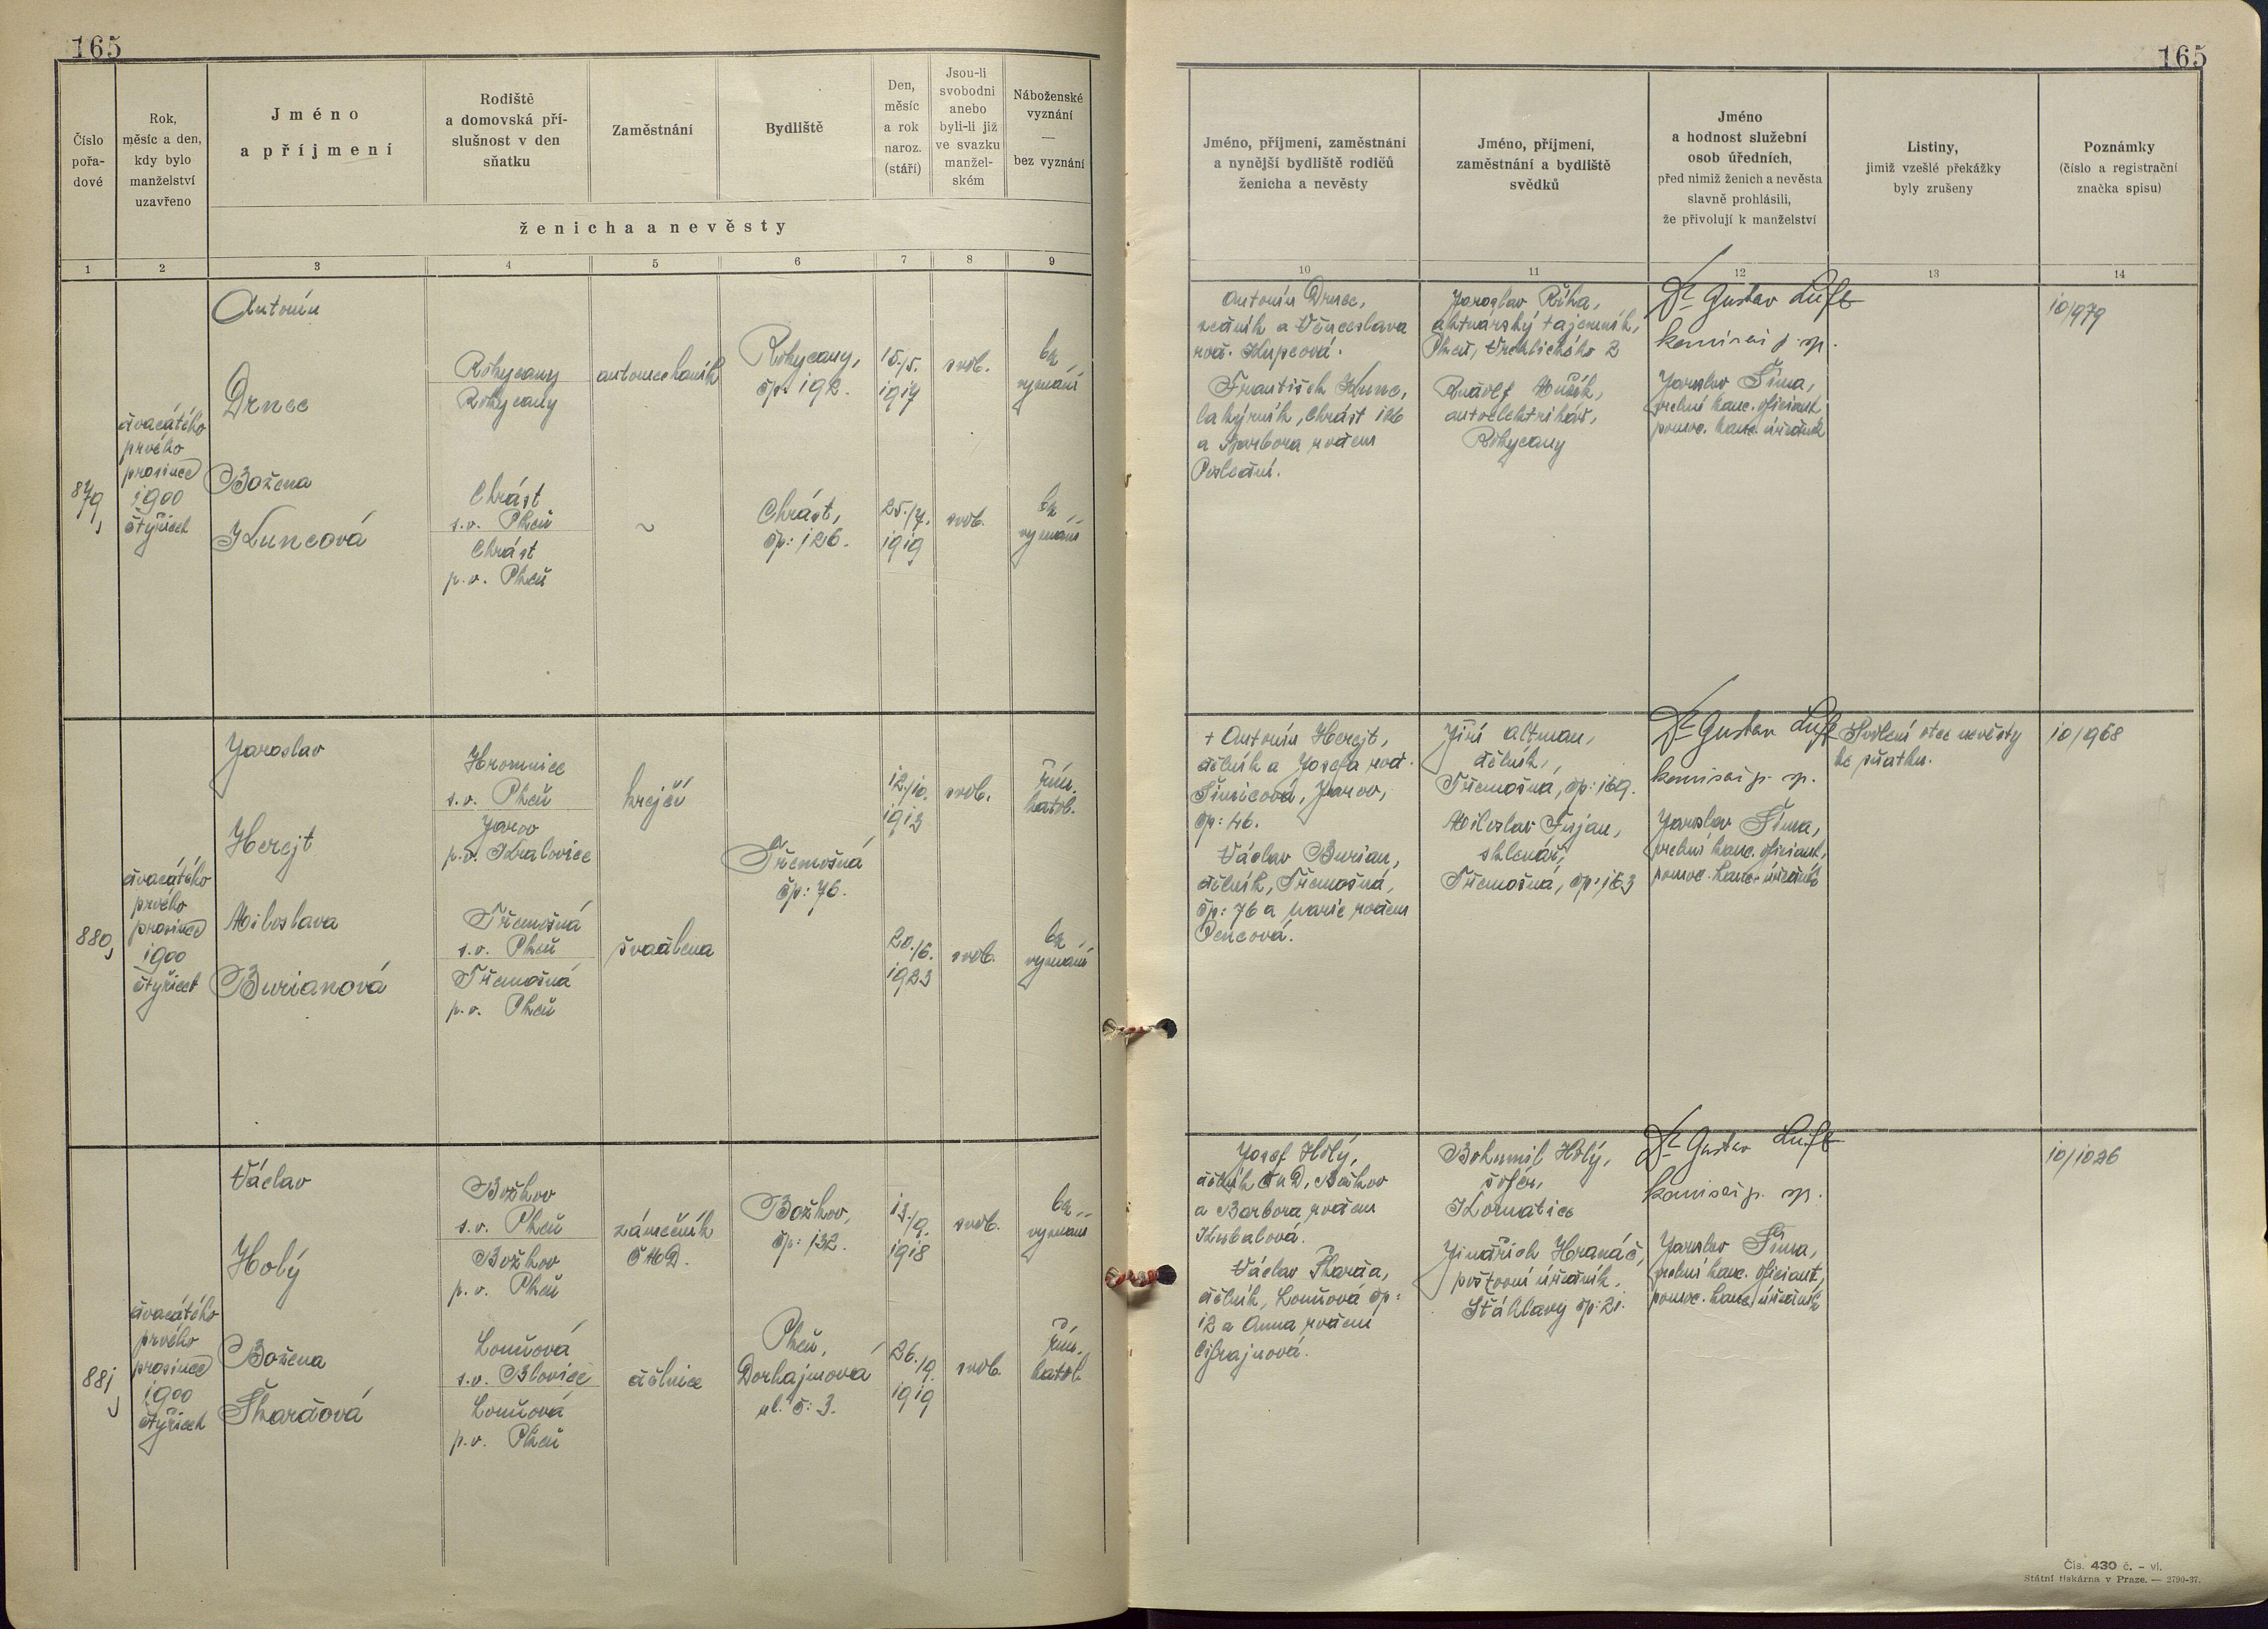 165
165
Číslo
pořa-
dové
Rok,
měsíc a den,
kdy bylo
manželství
uzavřeno
Jméno
a příjmení
Rodiště
a domovská pří-
slušnost v den
sňatku
Zaměstnání
Bydliště
Den,
měsíc
a rok
naroz.
(stáří)
Jsou-li
svobodni
anebo
byli-li již
ve svazku
manžel-
ském
Náboženské
vyznání
—
bez vyznání
ženicha a nevěsty
Jméno, příjmení, zaměstnání
a nynější bydliště rodičů
ženicha a nevěsty
Jméno, příjmení,
zaměstnání a bydliště
svědků
Jméno
a hodnost služební
osob úředních,
před nimiž ženich a nevěsta
slavně prohlásili,
že přivolují k manželství
Listiny,
jimiž vzešlé překážky
byly zrušeny
Poznámky
(číslo a registrační
značka spisu)
1 2 3 4 5 6 7 8 9
10 11 12 13 14
879,
dvacátého
prvého
prosince
1900
čtyřicet
Antonín
Drnec
Božena
Kuncová
Rokycany
Rokycany
Chrást
s.o. Plzeň
Chrást
p.o. Plzeň
automechanik
~
Rokycany,
čp: 192.
Chrást,
čp: 126.
15./5.
1917
25./7.
1919
svob.
svob.
bez
vyznání
bez
vyznání
Antonín Drnec,
zedník a Věnceslava
roz. Kupcová.
František Kunc,
lakýrník, Chrást 126
a Barbora rozem
Poslední.
Jaroslav Říha,
aktuárský tajemník,
Plzeň, Vrchlického 2
Rudolf Mušík,
autoelektrikář,
Rokycany
Dr Gustav Luft
komisař p. sp.
Jaroslav Šíma,
vrchní kanc. oficiant,
pomoc. kanc. úředník
10/979
880,
dvacátého
prvého
prosince
1900
čtyřicet
Jaroslav
Herejt
Miloslava
Burianová
Hromnice
s.o. Plzeň
Jarov
p.o. Kralovice
Třemošná
s.o. Plzeň
Třemošná
p.o. Plzeň
krejčí
švadlena
Třemošná
čp: 76.
12./10.
1913
20./6.
1923
svob.
svob.
řím.
katol.
bez
vyznání
+ Antonín Herejt,
dělník a Josefa roz.
Šimicová, Jarov,
čp: 46.
Václav Burian,
dělník, Třemošná,
čp: 76 a Marie rozem
Pencová.
Jiří Altman,
dělník,
Třemošná, čp: 169.
Miloslav Fujan,
sklenář,
Třemošná, čp: 163
Dr Gustav Luft
komisař p. sp.
Jaroslav Šíma,
vrchní kanc. oficiant,
pomoc. kanc. úředník
Svolení otce nevěsty
ke sňatku.
10/968
881,
dvacátého
prvého
prosince
1900
čtyřicet
Václav
Holý
Božena
Tkardová
Božkov
s.o. Plzeň
Božkov
p.o. Plzeň
Louňová
s.o. Blovice
Louňová
p.o. Plzeň
zámečník
ČMD.
dělnice
Božkov,
čp: 132.
Plzeň,
Dorhajmova
ul. č: 3.
13./9.
1918
26./9.
1919
svob.
svob.
bez
vyznání
řím.
katol.
Josef Holý,
dělník ČMD, Božkov
a Barbora rozem
Kubalová.
Václav Tkarda,
dělník, Louňová čp:
12 a Anna rozem
Bohumil Holý,
šofér,
Kornatice
Jindřich Hranáč,
poštovní úředník,
Štáhlavy čp: 21.
Dr Gustav Luft
komisař p. sp.
Jaroslav Šíma,
vrchní kanc. oficiant,
pomoc. kanc. úředník
10/1026
Čís. 430 č. – vl.
Státní tiskárna v Praze. — 2790-37.